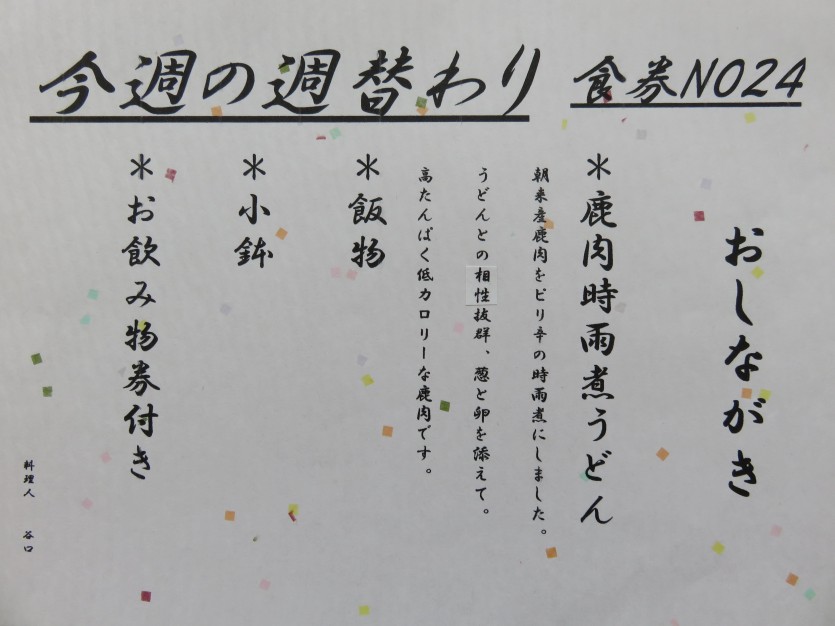 今週の週替わり
食券NO24
おしながき
＊鹿肉時雨煮うどん
朝来産鹿肉をピリ辛の時雨煮にしました。
うどんとの相性抜群、葱と卵を添えて。
高たんぱく低カロリーな鹿肉です。
＊飯物
＊小鉢
＊お飲み物券付き
料理人 谷口